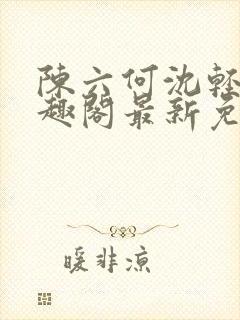 陳六何沈輕
趣閣最新免
暖非涼